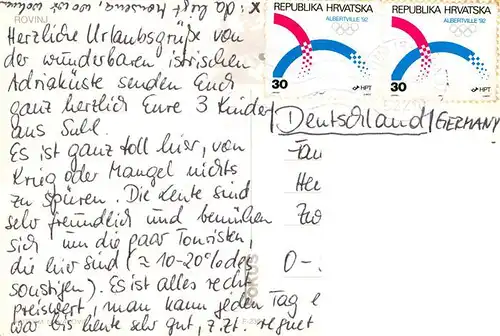 x: da liegt Rovinj
ROVINJ
Herzliche Urlaubsgrüße von
der wunderbaren istrischen
Adriaküste senden Euch
ganz herzlich Eure 3 Kinder
aus Suhl.
Es ist ganz toll hier, von
Krieg oder Mangel nichts
zu spüren. Die Leute sind
sehr freundlich und bemühen
sich um die paar Touristen,
die hier sind (≈ 10-20% des
sonstigen). Es ist alles recht
preiswert, man kann jeden Tag
war bis heute sehr gut, z.Zt. regnet
REPUBLIKA HRVATSKA
ALBERTVILLE '92
30
HPT
REPUBLIKA HRVATSKA
ALBERTVILLE '92
30
HPT
Deutschland/GERMANY
Fam
Her
Zw
O-